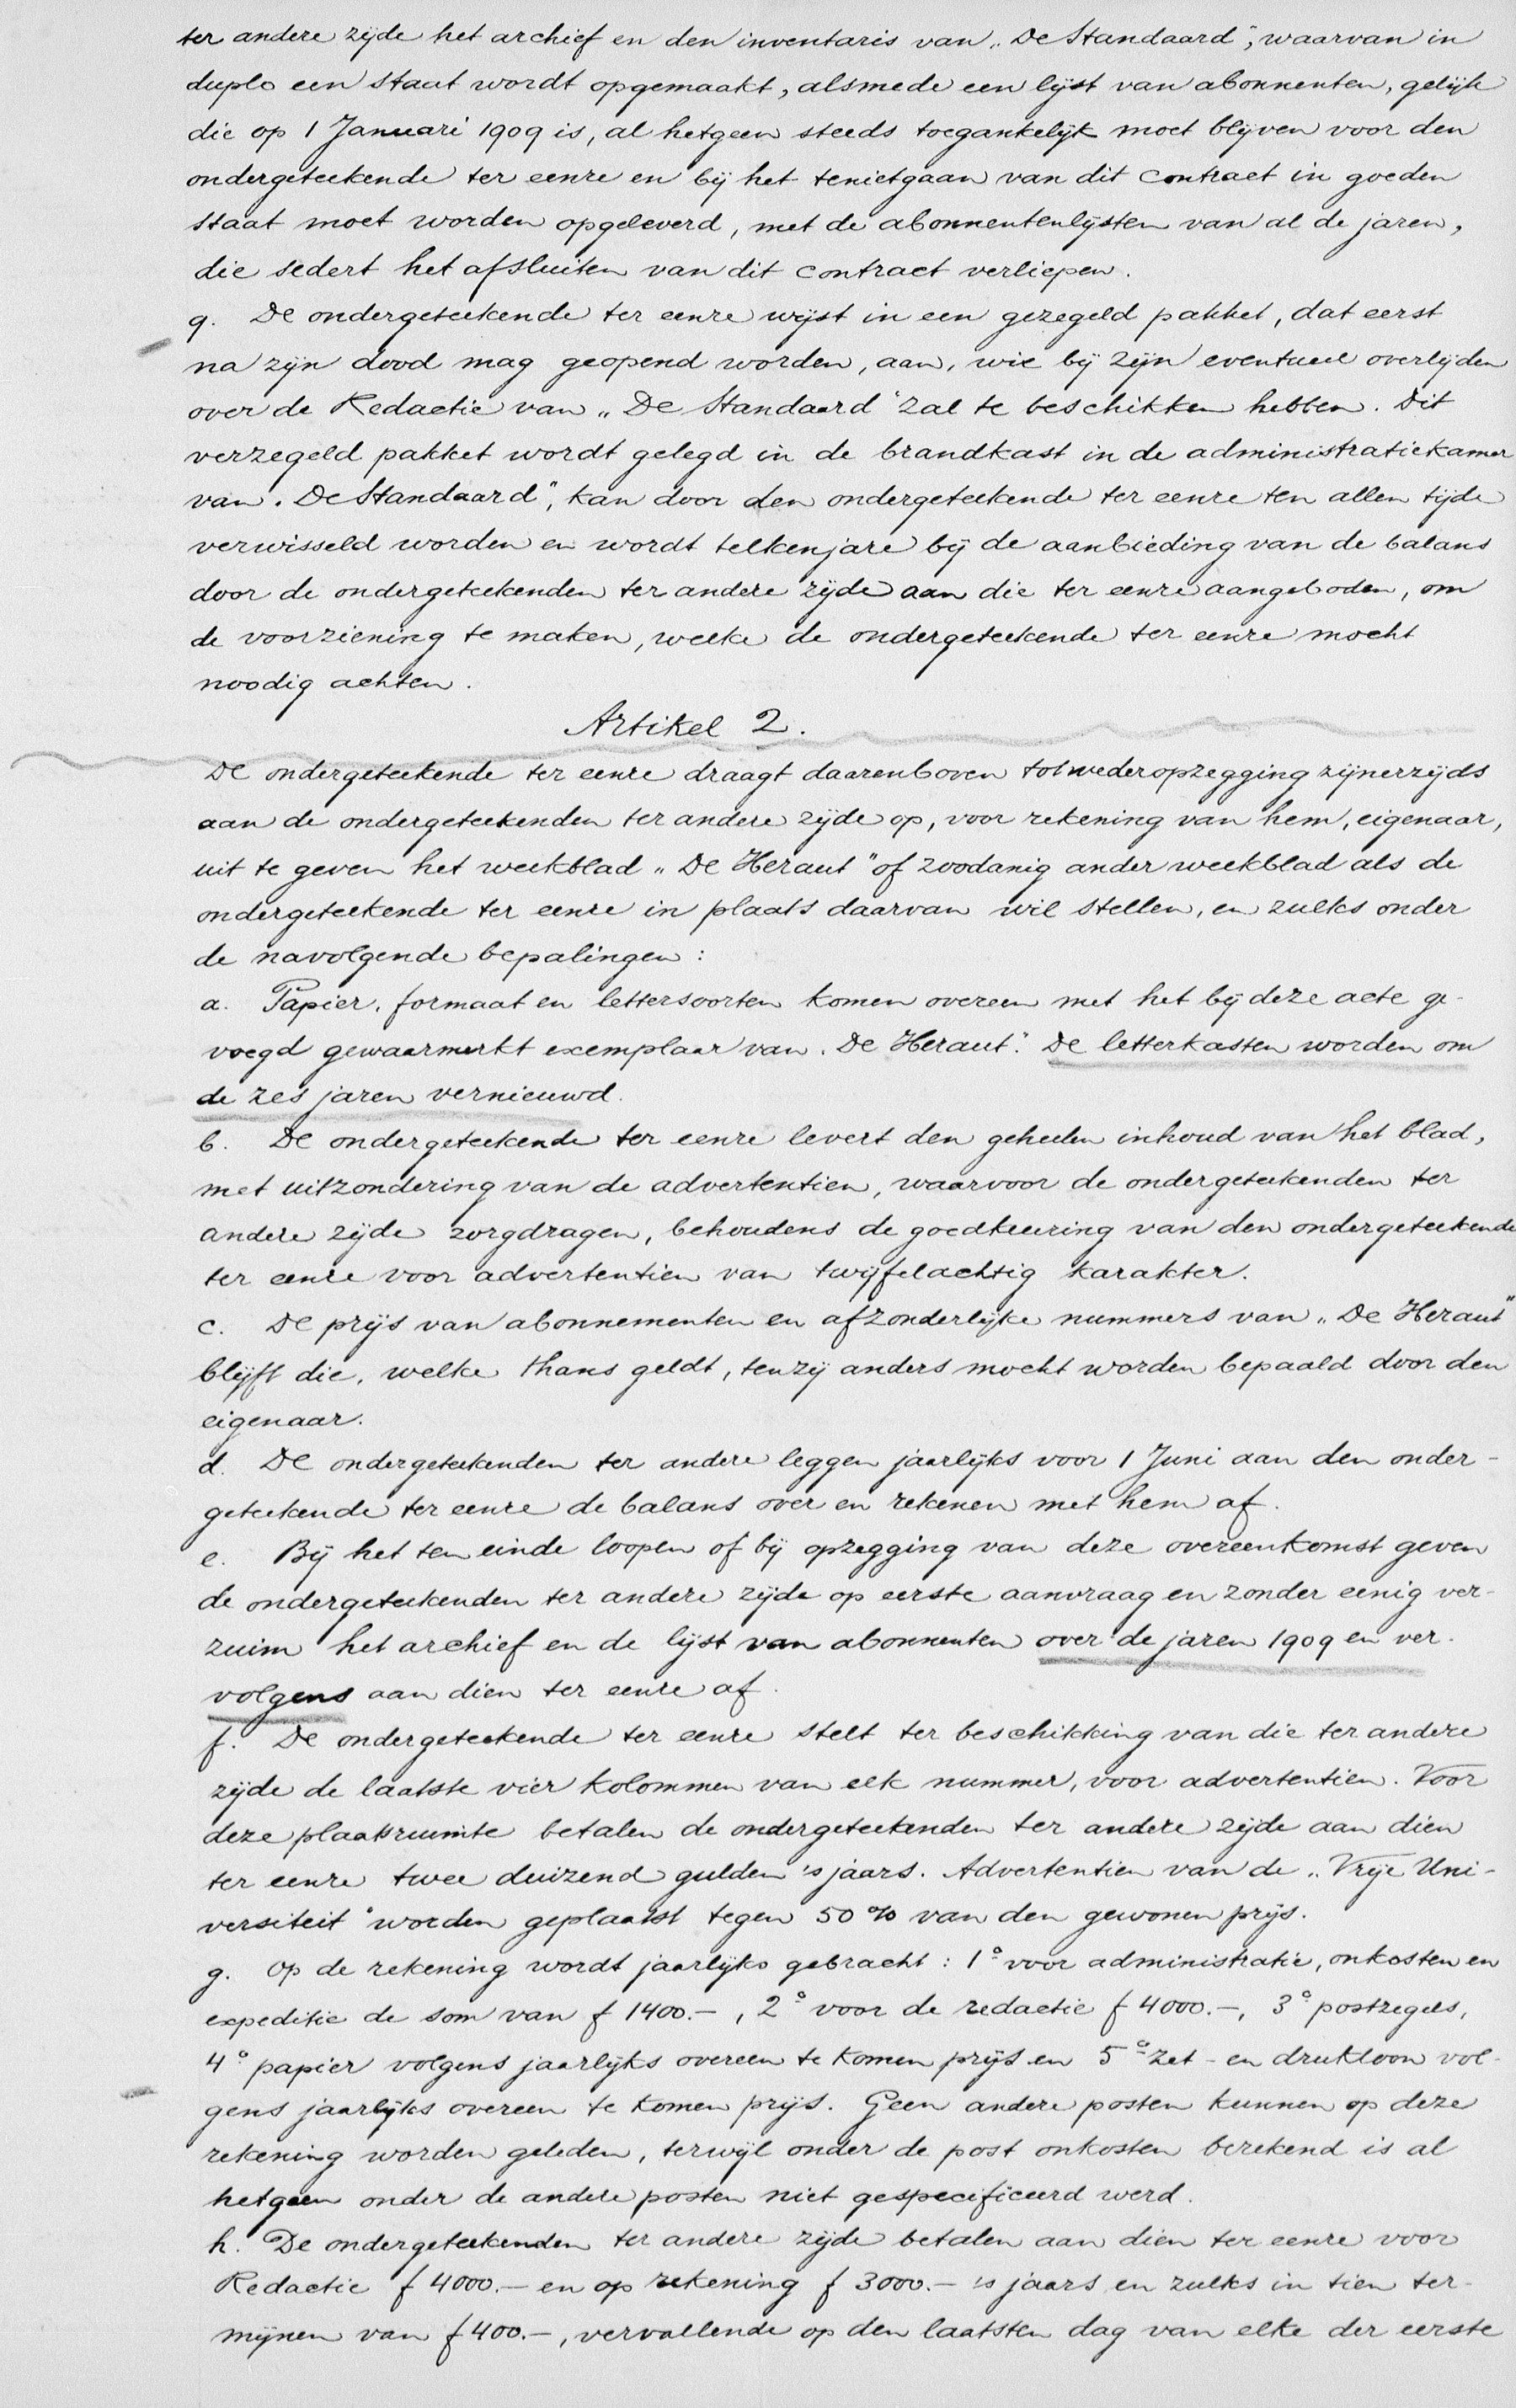 ter andere zijde het archief en den inventaris van „De Standaard", waarvan in
duplo een staat wordt opgemaakt, alsmede een lijst van abonnenten, gelijk
die op 1 Januari 1909 is, al hetgeen steeds toegankelijk moet blijven voor den
ondergeteekende ter eenre en bij het tenietgaan van dit contract in goeden
staat moet worden opgeleverd, met de abonnentenlijsten van al de jaren,
die sedert het afsluiten van dit contract verliepen.
q. De ondergeteekende ter eenre wijst in een gezegeld pakket, dat eerst
na zijn dood mag geopend worden, aan, wie bij zijn eventueel overlijden
over de Redactie van „De Standaard" zal te beschikken hebben. Dit
verzegeld pakket wordt gelegd in de brandkast in de administratiekamer
van „De Standaard", kan door den ondergeteekende ter eenre ten allen tijde
verwisseld worden en wordt telkenjare bij de aanbieding van de balans
door de ondergeteekenden ter andere zijde aan die ter eenre aangeboden, om
de voorziening te maken, welke de ondergeteekende ter eenre mocht
noodig achten.
Artikel 2.
De ondergeteekende ter eenre draagt daarenboven tot wederopzegging zijnerzijds
aan de ondergeteekenden ter andere zijde op, voor rekening van hem, eigenaar,
uit te geven het weekblad „De Heraut" of zoodanig ander weekblad als de
ondergeteekende ter eenre in plaats daarvan wil stellen, en zulks onder
de navolgende bepalingen:
a. Papier, formaat en lettersoorten komen overeen met het bij deze acte ge-
voegd gewaarmerkt exemplaar van „De Heraut". De letterkasten worden om
de zes jaren vernieuwd.
b. De ondergeteekende ter eenre levert den geheelen inhoud van het blad,
met uitzondering van de advertentien, waarvoor de ondergeteekenden ter
andere zijde zorgdragen, behoudens de goedkeuring van den ondergeteekende
ter eenre voor advertentien van twijfelachtig karakter.
c. De prijs van abonnementen en afzonderlijke nummers van „De Heraut"
blijft die, welke thans geldt, tenzij anders mocht worden bepaald door den
eigenaar.
d. De ondergeteekenden ter andere leggen jaarlijks voor 1 Juni aan den onder-
geteekende ter eenre de balans over en rekenen met hem af.
e. Bij het ten einde loopen of bij opzegging van deze overeenkomst geven
de ondergeteekenden ter andere zijde op eerste aanvraag en zonder eenig ver-
zuim het archief en de lijst van abonnenten over de jaren 1909 en ver-
volgens aan dien ter eenre af.
f. De ondergeteekende ter eenre stelt ter beschikking van die ter andere
zijde de laatste vier kolommen van elk nummer, voor advertentien. Voor
deze plaatsruimte betalen de ondergeteekenden ter andere zijde aan dien
ter eenre twee duizend gulden 's jaars. Advertentien van de „Vrije Uni-
versiteit" worden geplaatst tegen 50 % van den gewonen prijs.
g. Op de rekening wordt jaarlijks gebracht: 1° voor administratie, onkosten en
expeditie de som van f 1400.-, 2° voor de redactie f 4000.-, 3° postzegels,
4° papier volgens jaarlijks overeen te komen prijs en 5° zet- en drukloon vol-
gens jaarlijks overeen te komen prijs. Geen andere posten kunnen op deze
rekening worden geleden, terwijl onder de post onkosten berekend is al
hetgeen onder de andere posten niet gespecificeerd werd.
h. De ondergeteekenden ter andere zijde betalen aan dien ter eenre voor
Redactie f 4000.- en op rekening f 3000.- 's jaars en zulks in tien ter-
mijnen van f 400.-, vervallende op den laatsten dag van elke der eerste